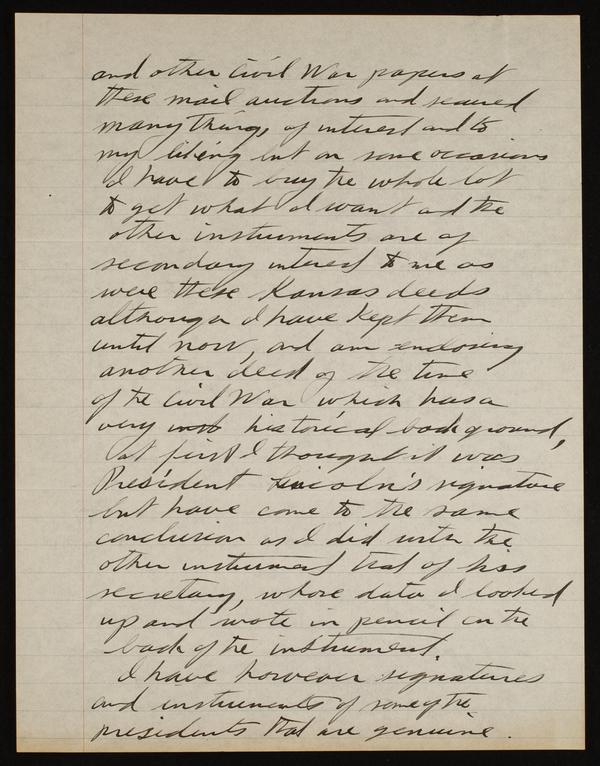 and other Civil War papers at
these mail auctions and secured
many things of interest and to
my liking but on some occasions
I have to buy the whole lot
to get what I want and the
other instruments are of
secondary interest to me as
were these Kansas deeds
although I have kept them
until now, and am enclosing
another deed of the time
of the Civil War which has a
very historical back ground,
at first I thought it was
President Lincoln's signature
but have come to the same
conclusion as I did with the
other instrument that of his
secretary, whose data I looked
up and wrote in pencil on the
back of the instrument.
I have however signatures
and instruments of some of the
presidents that are genuine.